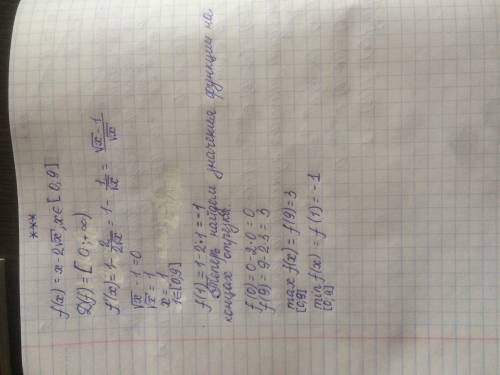 ***
f(x) = x - 2√x, x∈[0,9]
D(f) = [0; +∞)
f'(x) = 1 - 2/(2√x) = 1 - 1/√x = (√x - 1)/√x
√x - 1 = 0
√x = 1
x = 1
1∈[0,9]
f(1) = 1 - 2·1 = -1
Теперь найдем значения функции на
концах отрезка
f(0) = 0 - 2·0 = 0
f(9) = 9 - 2·3 = 3
max f(x) = f(9) = 3
[0,9]
min f(x) = f(1) = -1
[0,9]